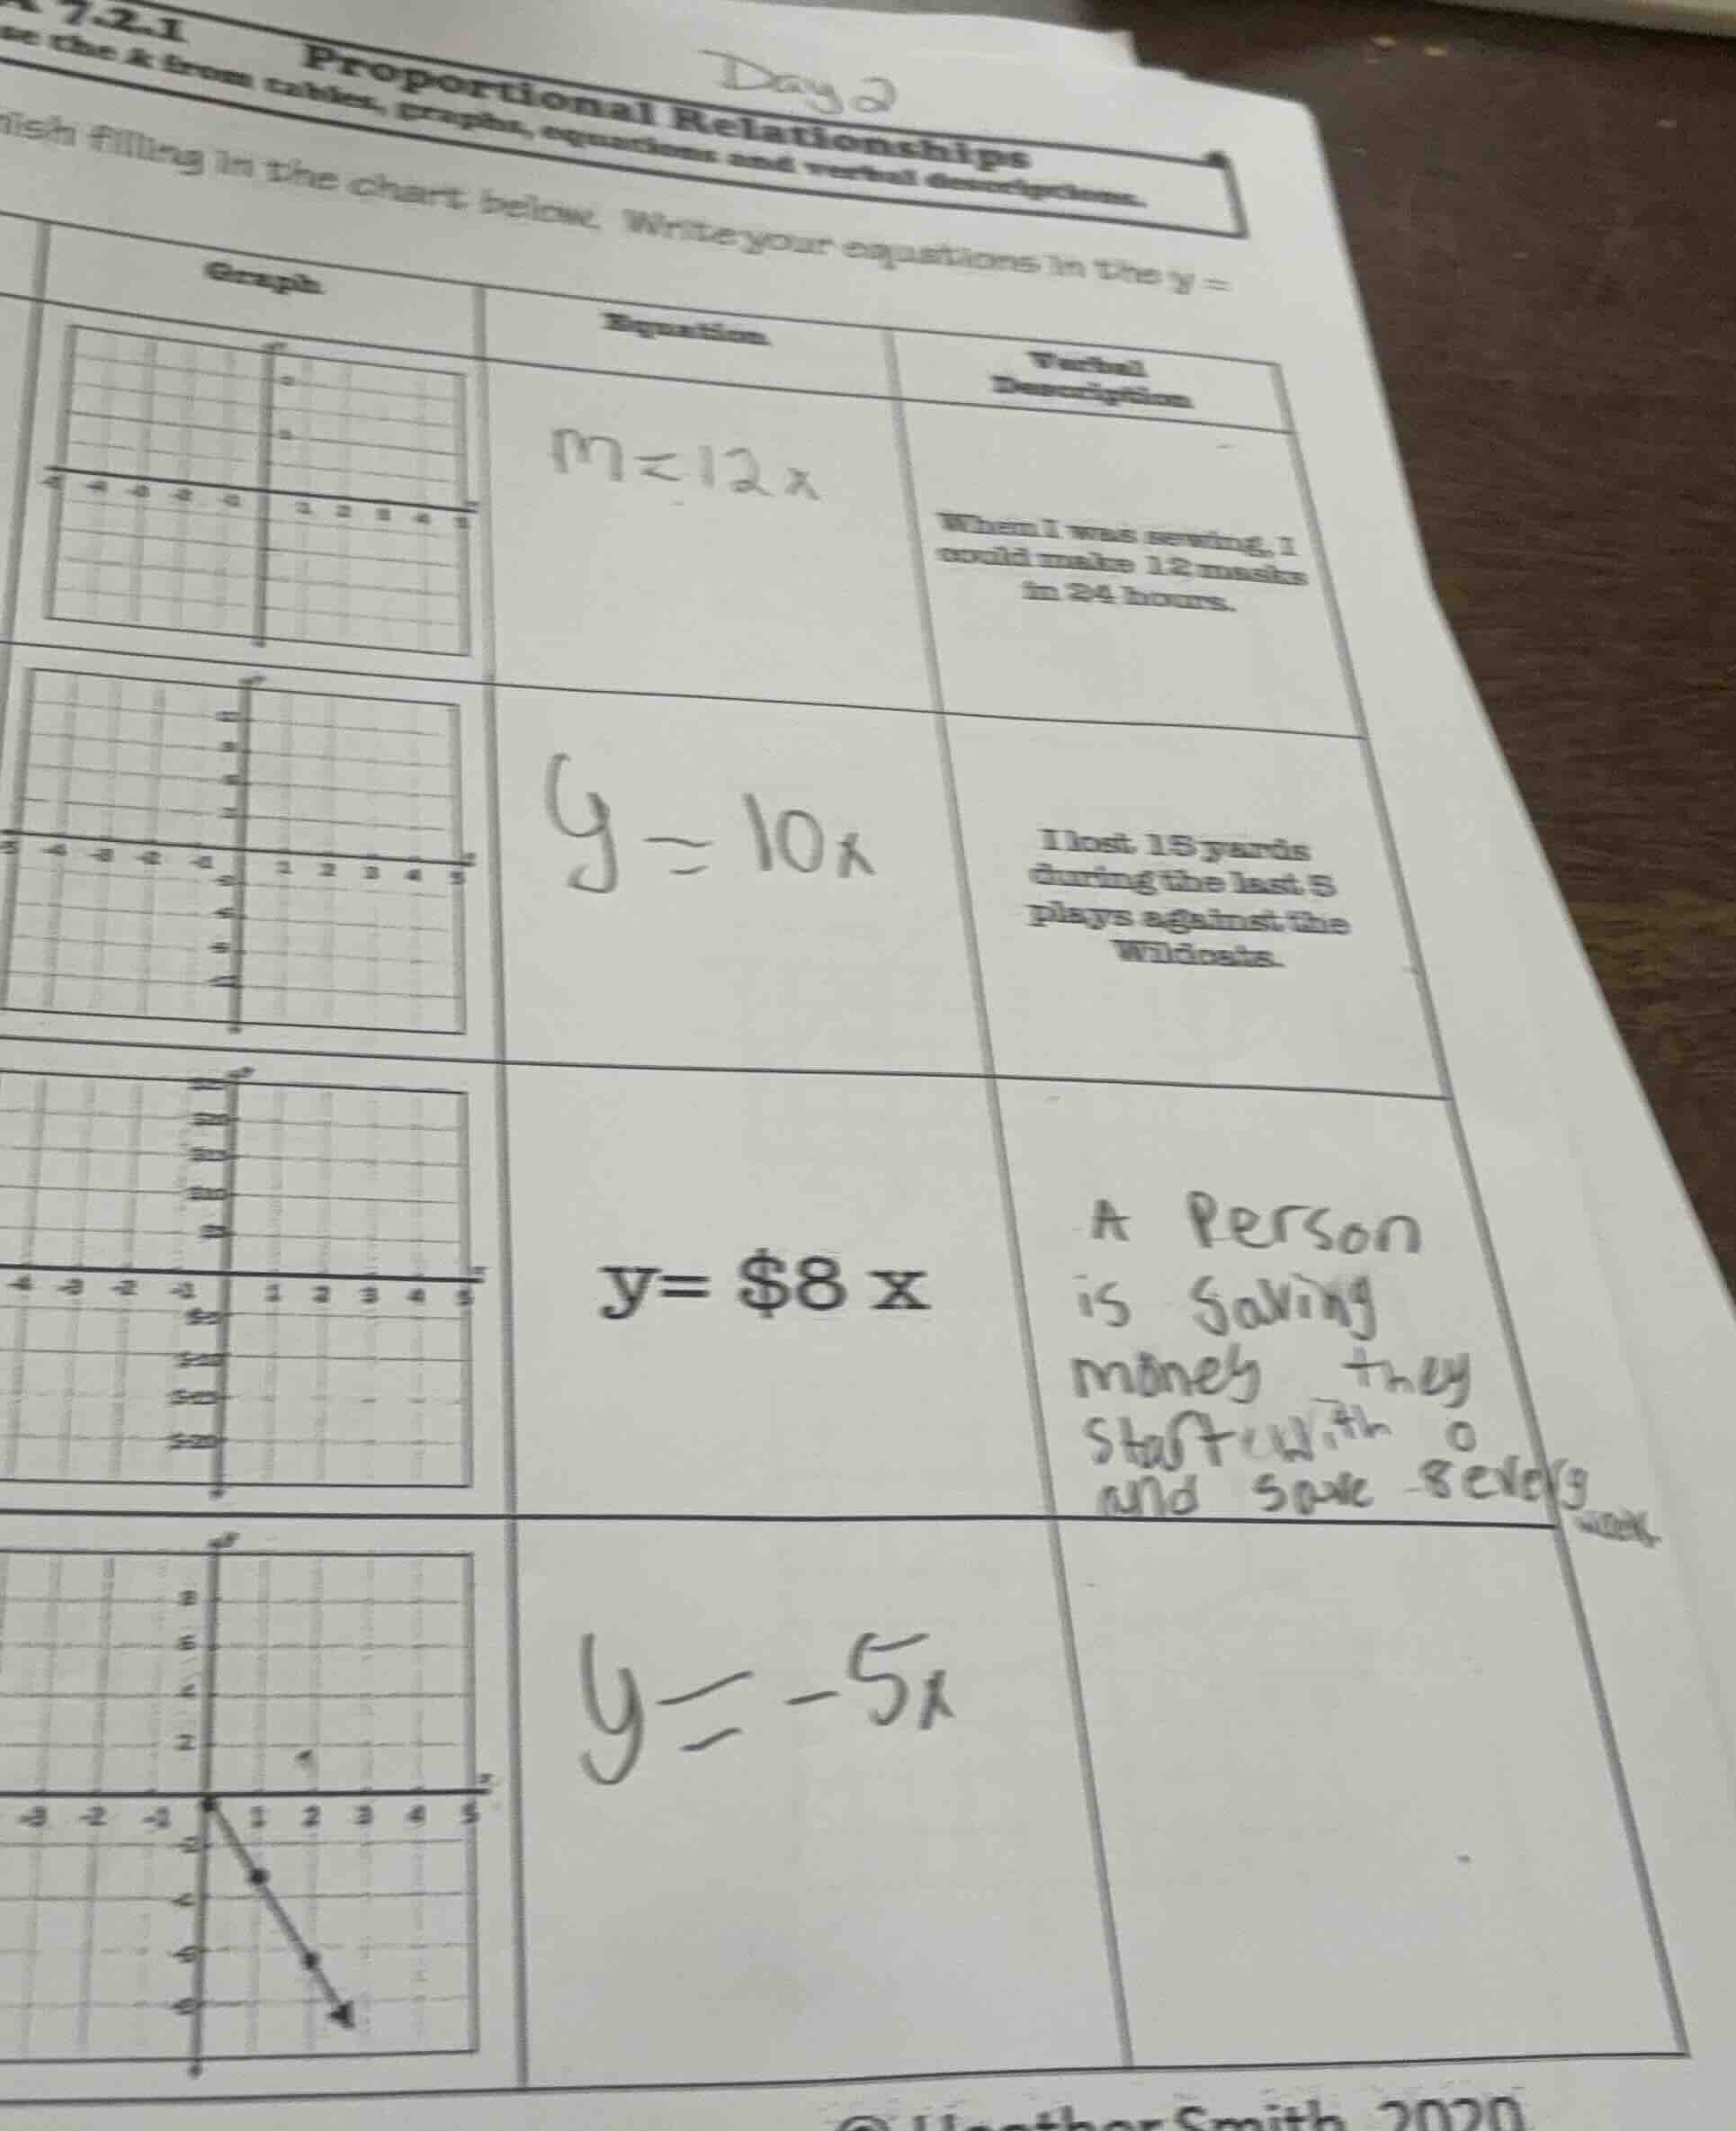 Day 2
7.2.1 Proportional Relationships
the k from tables, graphs, equations and verbal descriptions.
filling in the chart below. Write your equations in the y =
Graph Equation Verbal
Description
m = 12x
When I was sewing, I
could make 12 masks
in 24 hours.
-5 -4 -3 -2 -1 1 2 3 4 5
y = 10x
I lost 15 yards
during the last 5
plays against the
Wildcats.
-5 -4 -3 -2 -1 1 2 3 4 5
y= $8 x
A Person
is saving
money they
start with 0
and save 8 every
week
-4 -3 -2 -1 1 2 3 4 5
y = -5x
8
6
4
2
-3 -2 -1 1 2 3 4 5
-2
-4
-6
-8
© Heather Smith, 2020